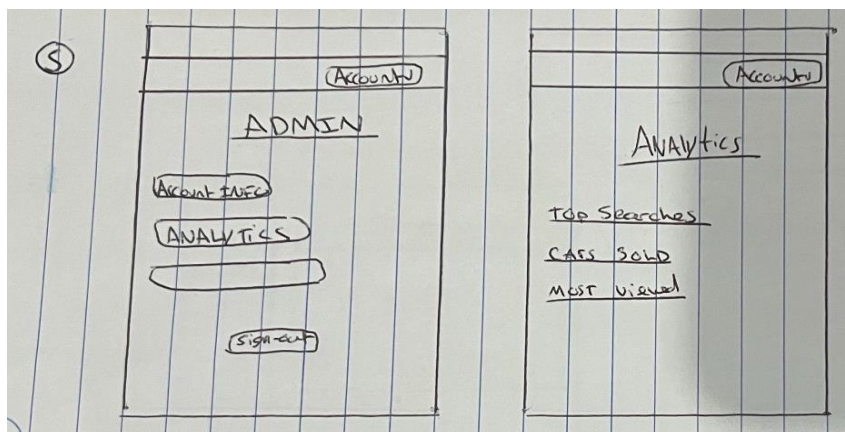 5
Account
ADMIN
Account INFO
ANALYTICS
Sign-out
Account
ANALYtics
TOP Searches
CARS SOLD
MOST Viewed